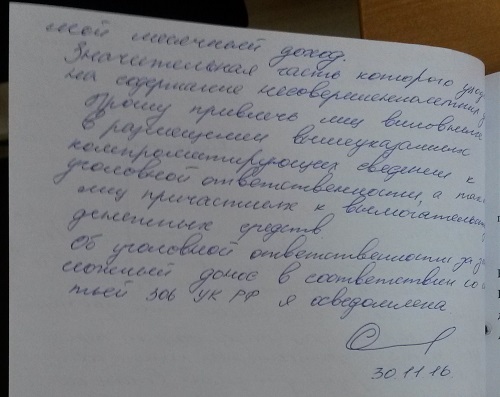 мой месячный доход.
Значительная часть которого
на содержание несовершеннолетних
Прошу привлечь лиц виновных
в размещении вышеуказанных
компрометирующих сведений к
уголовной ответственности, а так
лиц причастных к вымогательств
денежных средств.
Об уголовной ответственности за
ложный донос в соответствии со
тьей 306 УК РФ я осведомлена
30.11.16